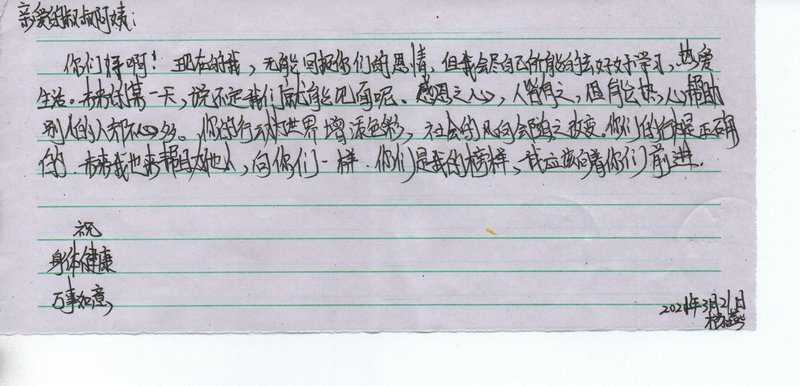 亲爱的叔叔阿姨：
你们好啊！现在的我，无能回报你们的恩情，但我会尽自己所能的去好好学习，热爱
生活。未来的某一天，说不定我们就能见面呢。感恩之心，人皆有之，但有能热心帮助
别人的人却不多。你的行动让世界增添色彩，社会的风向会随之改变。你们的行是正确
的。未来我也来帮助他人，向你们一样。你们是我的榜样，我应该向着你们前进。
祝
身体健康
万事如意
2021年3月21日